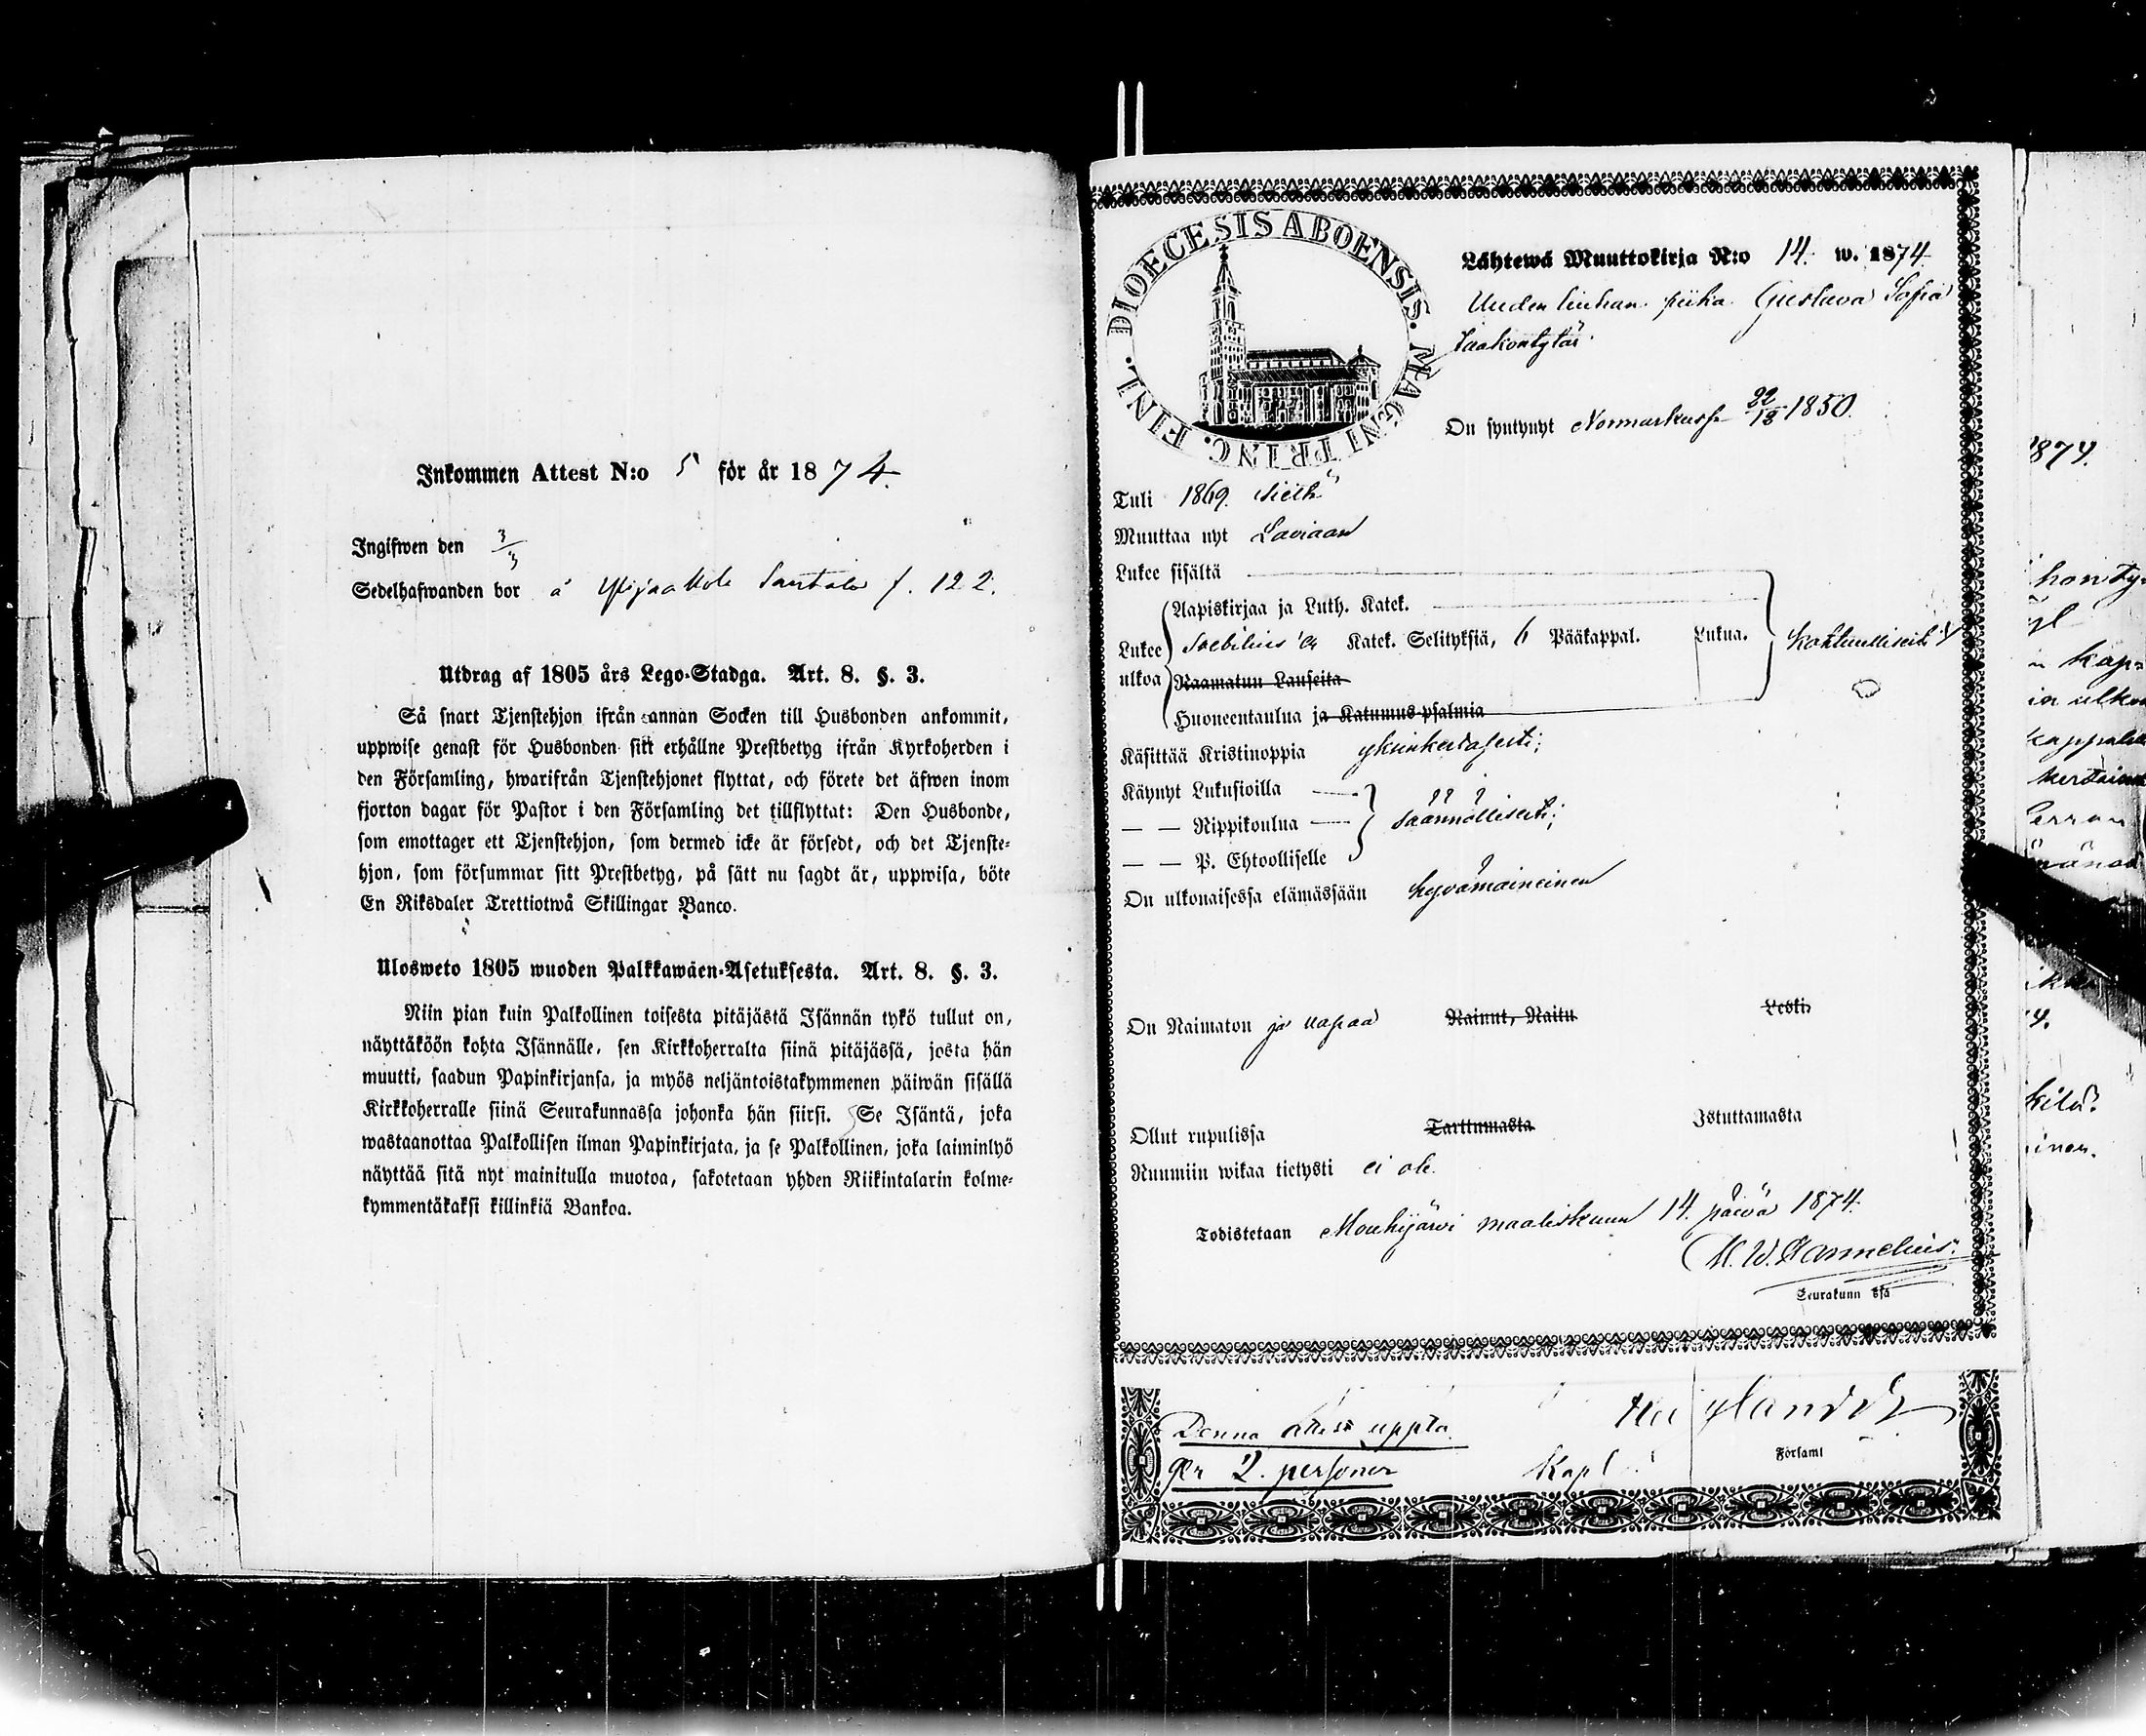 Inkommen Attest N:o 5 för år 1874.
Ingifwen den 3/3
Sedelhafwanden bor å Ypijaakola Santala f. 122.
Utdrag af 1805 års Lego-Stadga. Art. 8. §. 3.
Så snart Tjenstehjon ifrån annan Socken till Husbonden ankommit,
uppwise genast för Husbonden sitt erhållne Prestbetyg ifrån Kyrkoherden i
den Församling, hwarifrån Tjenstehjonet flyttat, och förete det äfwen inom
fjorton dagar för Pastor i den Församling det tillflyttat: Den Husbonde,
som emottager ett Tjenstehjon, som dermed icke är försedt, och det Tjenste-
hjon, som försummar sitt Prestbetyg, på sätt nu sagdt är, uppwisa, böte
En Riksdaler Trettiotwå Skillingar Banco.
Ulosweto 1805 wuoden Palkkawäen-Asetuksesta. Art. 8. §. 3.
Niin pian kuin Palkollinen toisesta pitäjästä Isännän tykö tullut on,
näyttäköön kohta Isännälle, sen Kirkkoherralta siinä pitäjässä, josta hän
muutti, saadun Papinkirjansa, ja myös neljäntoistakymmenen päiwän sisällä
Kirkkoherralle siinä Seurakunnassa johonka hän siirsi. Se Isäntä, joka
wastaanottaa Palkollisen ilman Papinkirjata, ja se Palkollinen, joka laiminlyö
näyttää sitä nyt mainitulla muotoa, sakotetaan yhden Riikintalarin kolme-
kymmentäkaksi killinkiä Bankoa.
DIOECESIS ABOENSIS. MAGNI PRINC. FINL.
Lähtewä Muuttokirja N:o 14. w. 1874.
Uuden linhan piika Gustava Sofia
Jaakontytär.
On syntynyt Normarkussa 22/12 1850.
Tuli 1869. sieltä
Muuttaa nyt Laviaan
Lukee sisältä
Aapiskirjaa ja Luth. Katek.
Lukee ulkoa Katek. Selityksiä, 6 Pääkappal. Lukua. kohtuullisesti
Raamatun Lauseita
Huoneentaulua ja Katumus-psalmia
Käsittää Kristinoppia yksinkertasesti;
Käynyt Lukusioilla
— — Rippikoulua säännöllisesti;
— — P. Ehtoolliselle
On ulkonaisessa elämässään hyvämaineinen
On Naimaton ja vapaa Nainut, Naitu Leski
Ollut rupulissa Tarttumasta Istuttamasta
Ruumiin wikaa tietysti ei ole.
Todistetaan Mouhijärvi maaliskuun 14. päivä 1874.
M. W. Hannelius.
Seurakunn ssa
Denna attest uppta
ger 2. personer Kapl.
Församl
1874.